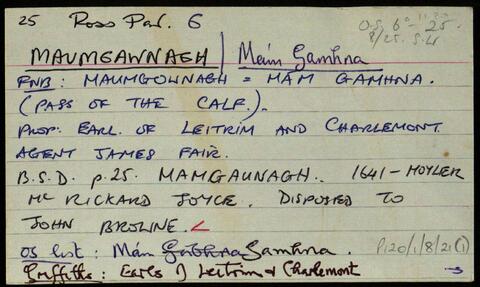 25 Ross Par. 6
O.S. 6" - 25.
8/25. S.W
MAUMGAWNAGH / Máim Gamhna
FNB: MAUMGOWNAGH = MÁM GAMHNA.
(PASS OF THE CALF.).
PROP: EARL. OF LEITRIM AND CHARLEMONT.
AGENT JAMES FAIR.
B.S.D. p.25. MAMGAUNAGH. 1641 - MOYLER
Mc RICKARD JOYCE. DISPOSED TO
JOHN BROLINE.
OS list: Mám Gabhna Gamhna.
Griffiths: Earls of Leitrim & Charlemont
P120/1/8/21(1)